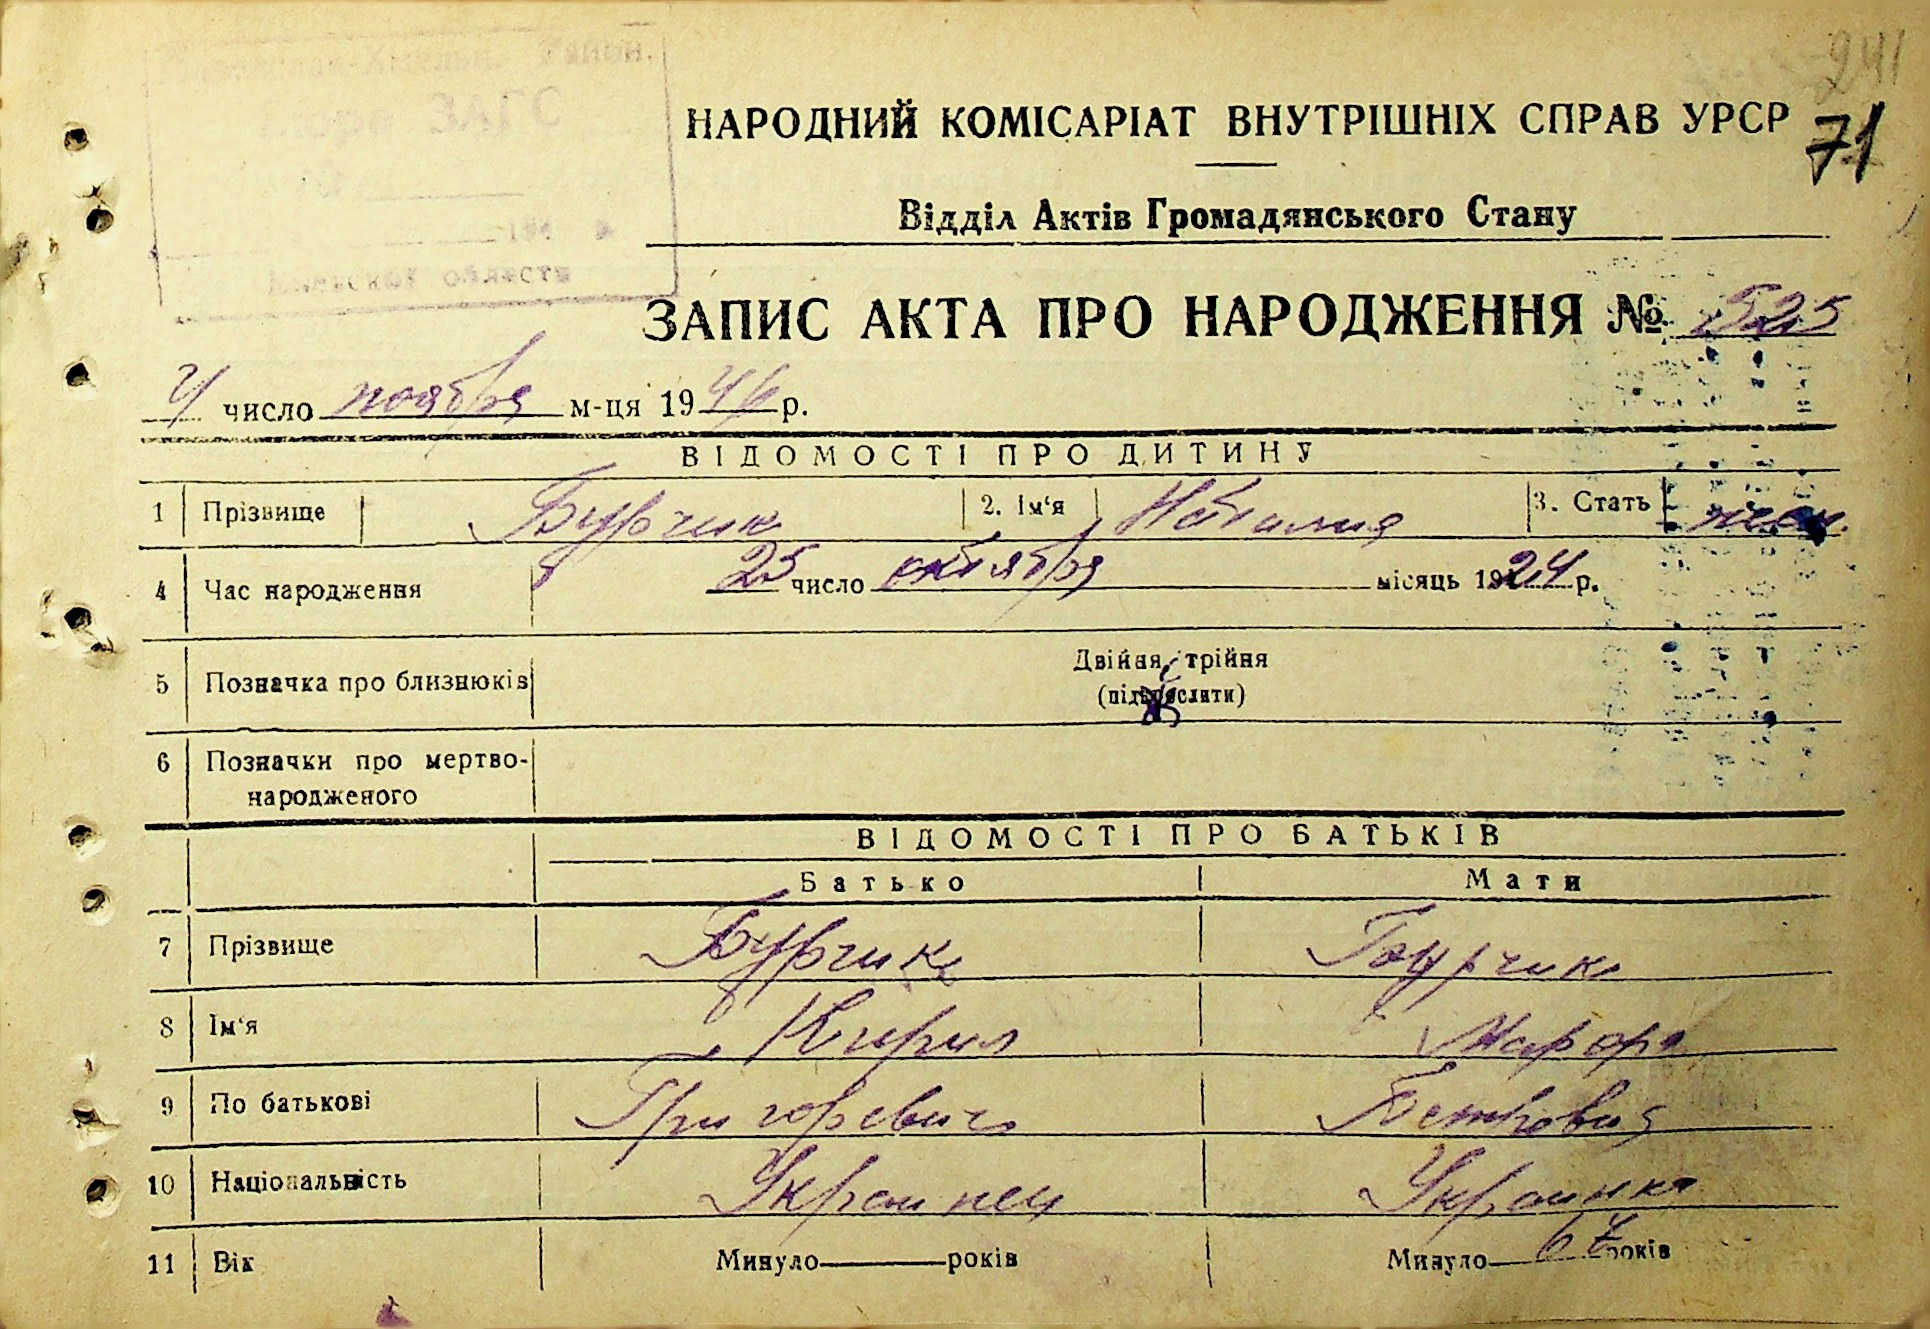 241
НАРОДНИЙ КОМІСАРІАТ ВНУТРІШНІХ СПРАВ УРСР 71
Відділ Актів Громадянського Стану
области
ЗАПИС АКТА ПРО НАРОДЖЕННЯ № 525
4 число ноября м-ця 1946 р.
ВІДОМОСТІ ПРО ДИТИНУ
1 Прізвище Бурчик 2. Ім'я Наталия 3. Стать жен.
4 Час народження 25 число октября місяць 1924 р.
5 Позначка про близнюків Двійня, трійня
(підкреслити)
6 Позначки про мертво-
народженого
ВІДОМОСТІ ПРО БАТЬКІВ
Батько Мати
7 Прізвище Бурчик Бурчик
8 Ім'я Кирил
9 По батькові Григоревич Петровна
10 Національність Украинец Украинка
11 Вік Минуло років Минуло 67 років